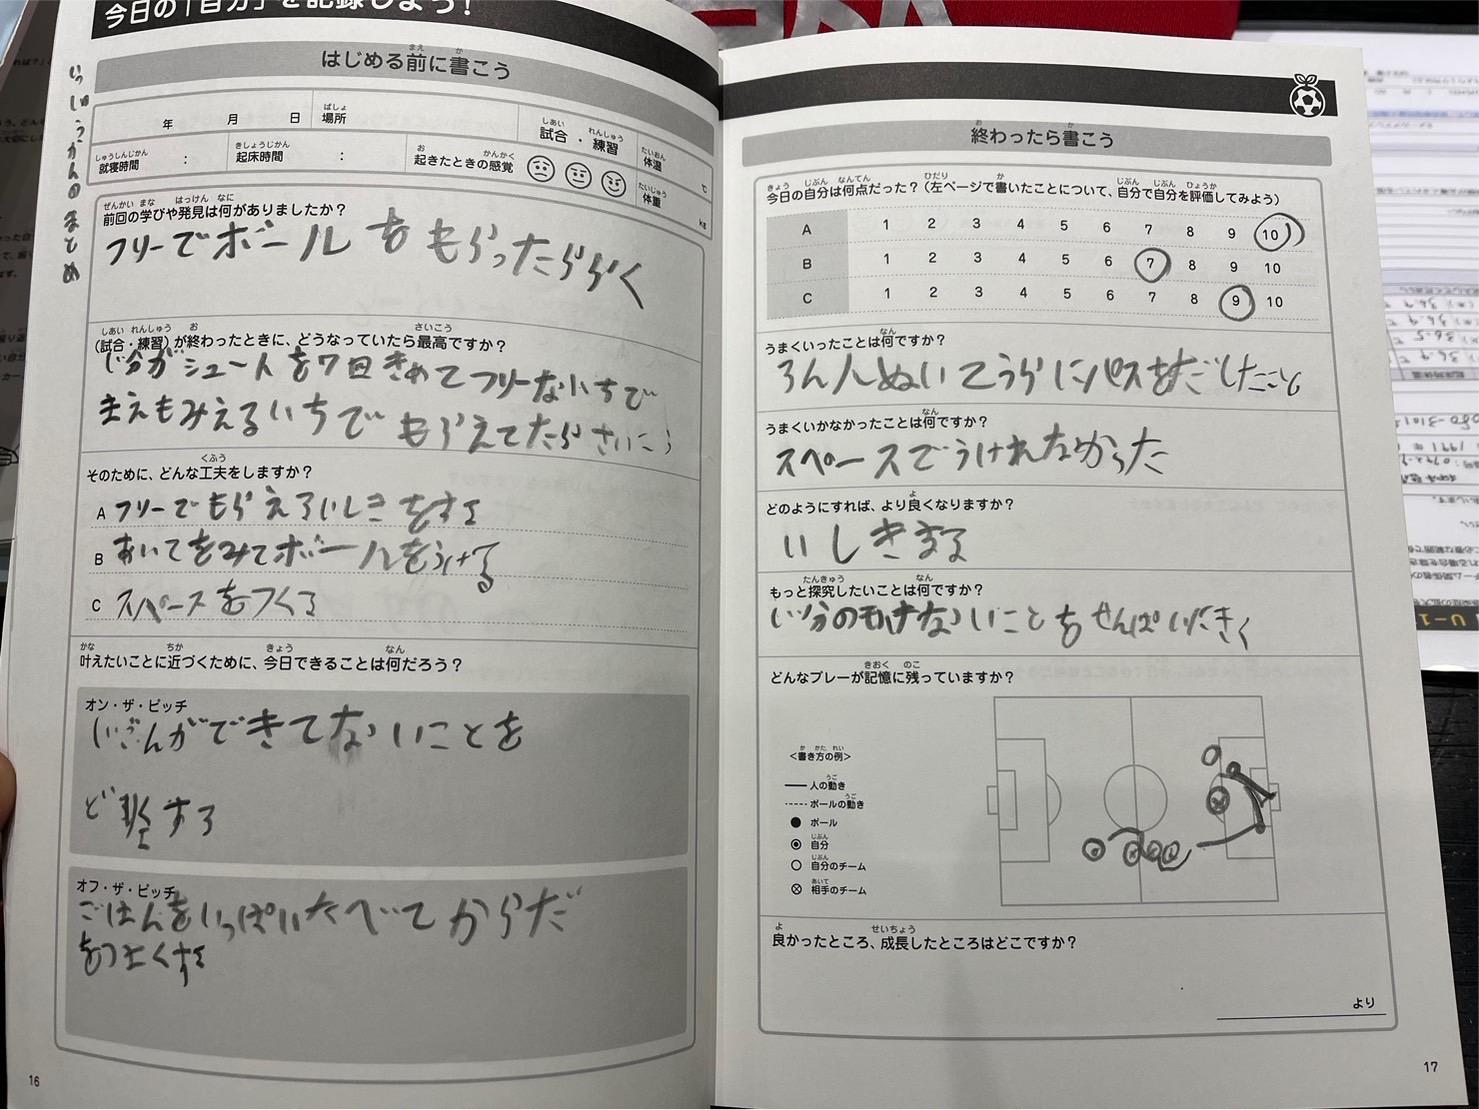 今日の「自分」を記録しよう!
いっしゅうかんのまとめ
はじめる前に書こう
年 月 日 場所 試合・練習 体温 ℃
就寝時間 : 起床時間 : 起きたときの感覚 体重 kg
前回の学びや発見は何がありましたか?
フリーでボールをもらったららく
(試合・練習)が終わったときに、どうなっていたら最高ですか?
じ分がシュートを7回きめてフリーないちで
まえもみえるいちでもらえてたらさいこう
そのために、どんな工夫をしますか?
A フリーでもらえるいしきをする
B あいてをみてボールをうける
C スペースをつくる
叶えたいことに近づくために、今日できることは何だろう?
オン・ザ・ピッチ
じぶんができてないことを
ど力する
オフ・ザ・ピッチ
ごはんをいっぱいたべてからだ
をつよくする
16
終わったら書こう
今日の自分は何点だった?(左ページで書いたことについて、自分で自分を評価してみよう)
A 1 2 3 4 5 6 7 8 9 10
B 1 2 3 4 5 6 7 8 9 10
C 1 2 3 4 5 6 7 8 9 10
うまくいったことは何ですか?
3人ぬいてうらにパスをだしたこと
うまくいかなかったことは何ですか?
スペースでうけれなかった
どのようにすれば、より良くなりますか?
いしきする
もっと探究したいことは何ですか?
じ分の ないことを せんぱいにきく
どんなプレーが記憶に残っていますか?
<書き方の例>
人の動き
ボールの動き
ボール
自分
自分のチーム
相手のチーム
良かったところ、成長したところはどこですか?
より
17